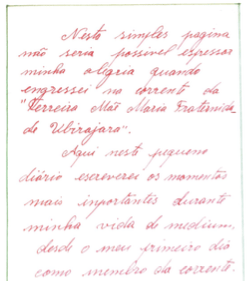 Nesta simples pagina
não seria possivel espressar
minha alegria quando
engressei na corrente da
"Terreira Mãe Maria Fraternida
de Ubirajara".
Aqui neste pequeno
diário escreverei os momentos
mais inportantes durante
minha vida de medium,
desde o meu primeiro dia
como membro da corrente.